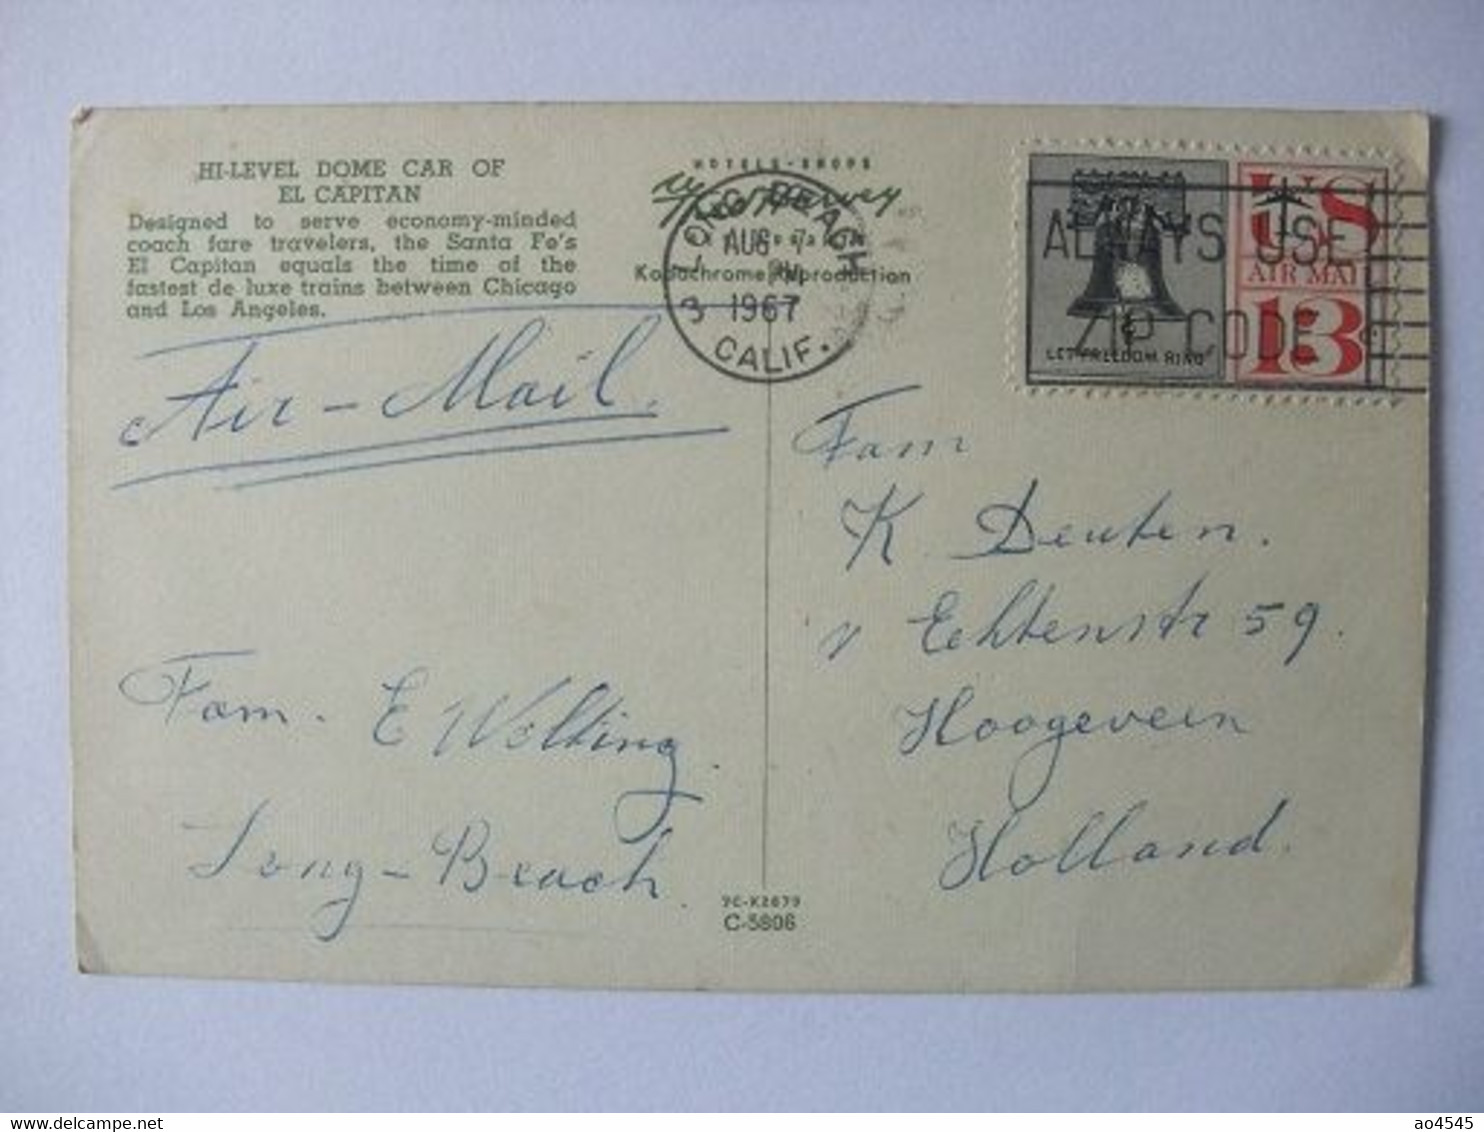 HI-LEVEL DOME CAR OF
EL CAPITAN
Designed to serve economy-minded
coach fare travelers, the Santa Fe's
El Capitan equals the time of the
fastest de luxe trains between Chicago
and Los Angeles.
HOTELS - SHOPS
Fred Harvey
Kodachrome Reproduction
LONG BEACH
AUG 7
PM
1967
CALIF.
3
ALWAYS USE
ZIP CODE
LET FREEDOM RING
US
AIR MAIL
13
Air-Mail.
Fam
K Deuten.
v Echtenstr 59.
Hoogeveen
Holland.
Fam. E Wolting.
Long-Beach.
7C-K2679
C-5806
ao4545